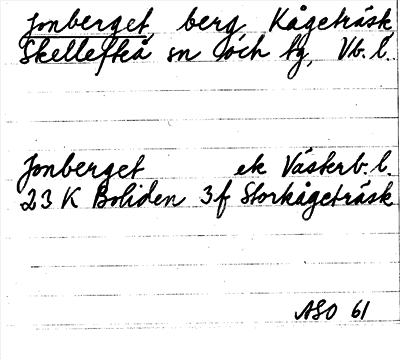 Jonberget, berg Kågeträsk,
Skellefteå sn och tg, Vb.l.
Jonberget ek Västerb.l.
23 K Boliden 3f Storkågeträsk
ASO 61